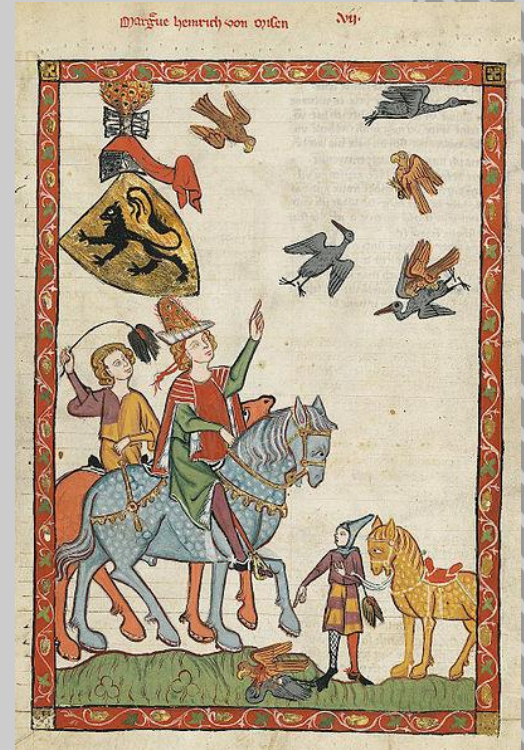 Margᵃue heinrich von Misen VII·